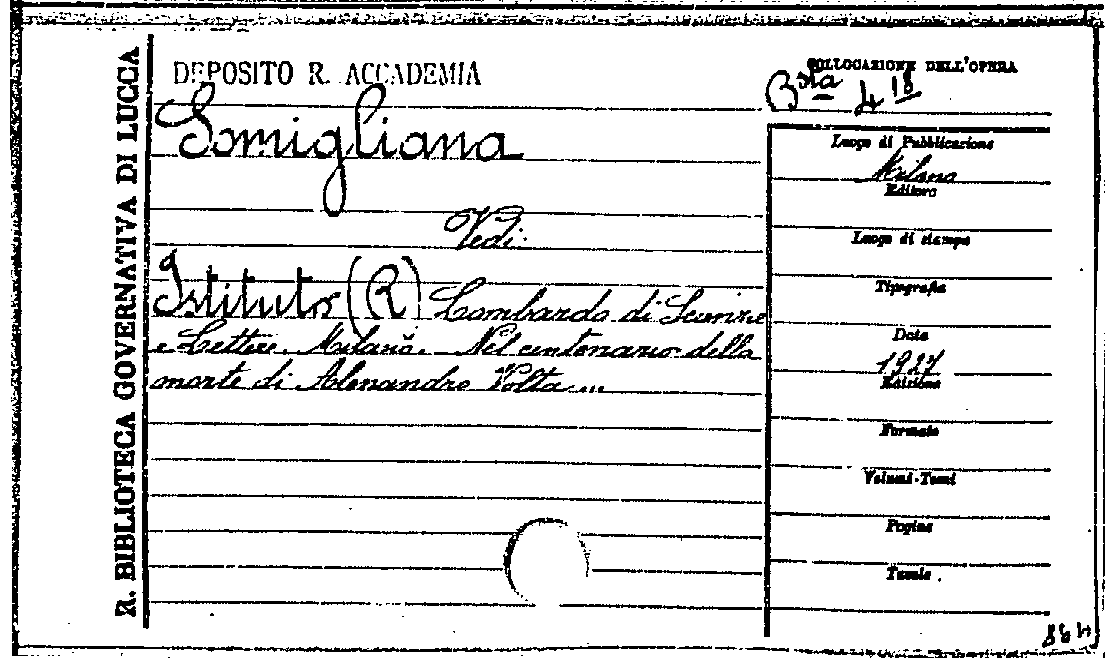 R. BIBLIOTECA GOVERNATIVA DI LUCCA
DEPOSITO R. ACCADEMIA
COLLOCAZIONE DELL'OPERA
Bsta 4 18
Somigliana
Vedi:
Istituto (R) Lombardo di Scienze
e Lettere. Milano. Nel centenario della
morte di Alessandro Volta...
Luogo di Pubblicazione
Milano
Editore
Luogo di stampa
Tipografia
Data
1927
Edizione
Formato
Volumi-Tomi
Pagine
Tavole